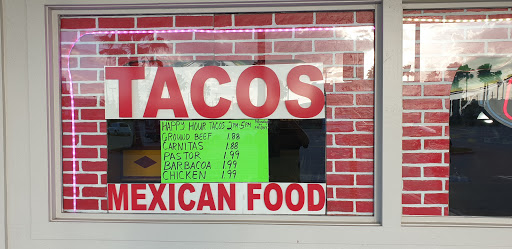 TACOS
HAPPY HOUR TACOS 2PM 5PM
GROUND BEEF 1.88
CARNITAS 1.88
PASTOR 1.99
BARBACOA 1.99
CHICKEN 1.99
MEXICAN FOOD